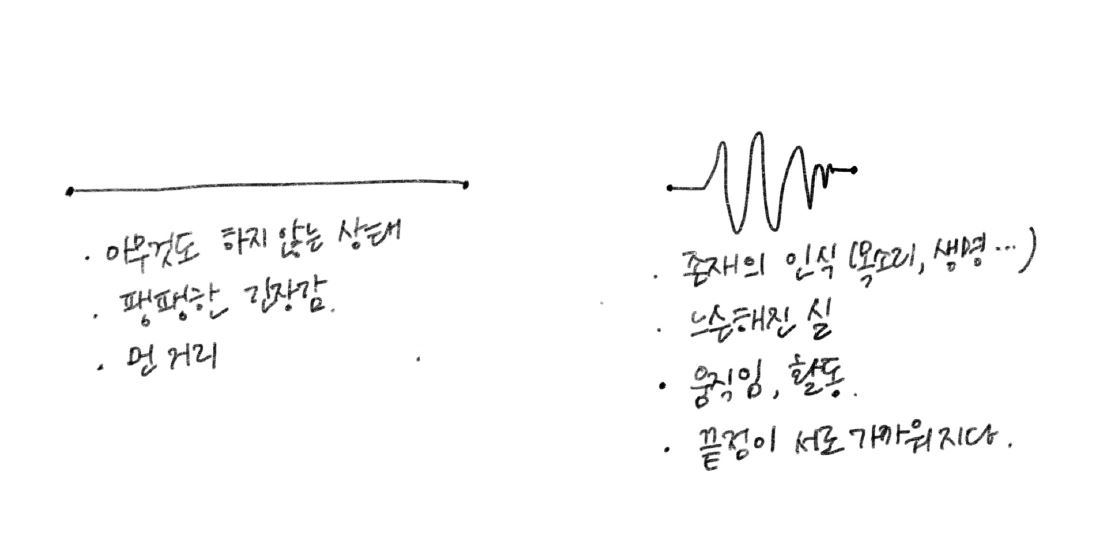 · 아무것도 하지 않는 상태
· 팽팽한 긴장감.
· 먼 거리
· 존재의 인식 (목소리, 생명...)
· 느슨해진 실
· 움직임, 활동.
· 끝점이 서로 가까워지다.